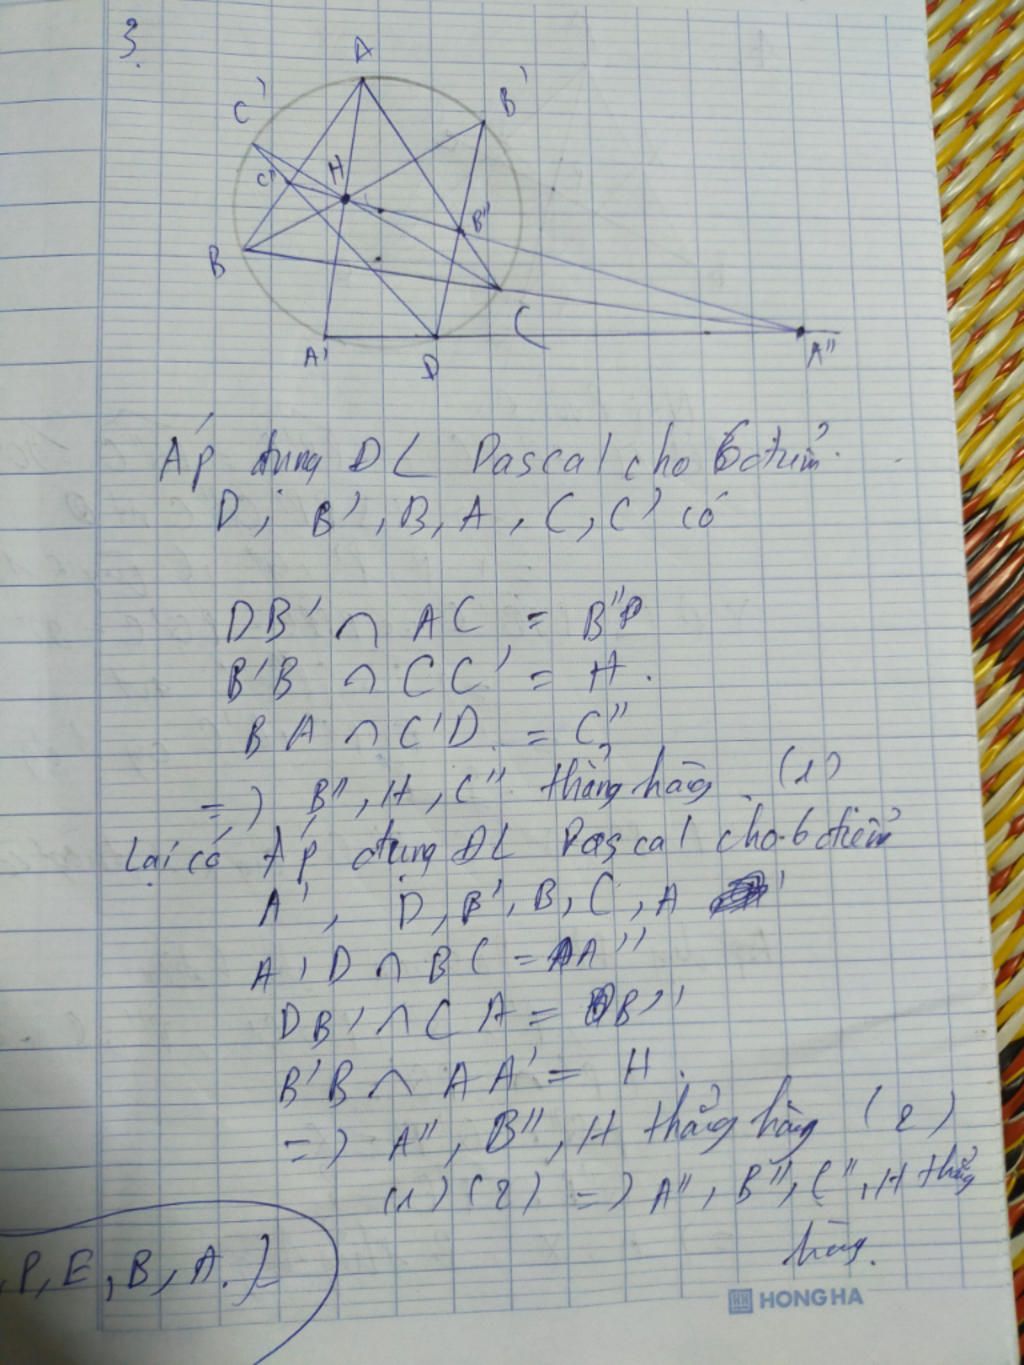 3.
A
C'
B'
H
C"
B"
B
C
A'
D
A"
Áp dụng DL Pascal cho 6 điểm.
D; B', B, A, C, C' có
DB' ∩ AC = B"
B'B ∩ CC' = H.
BA ∩ C'D = C"
=) B", H, C" thẳng hàng (1)
Lại có Áp dụng ĐL Pascal cho 6 điểm
A', D, B', B, C, A
A'D ∩ BC = A"
DB' ∩ CA = B"
B'B ∩ AA' = H.
=) A", B", H thẳng hàng (2)
(1) (2) =) A", B", C", H thẳng
hàng.
P, E, B, A.}
HONG HA